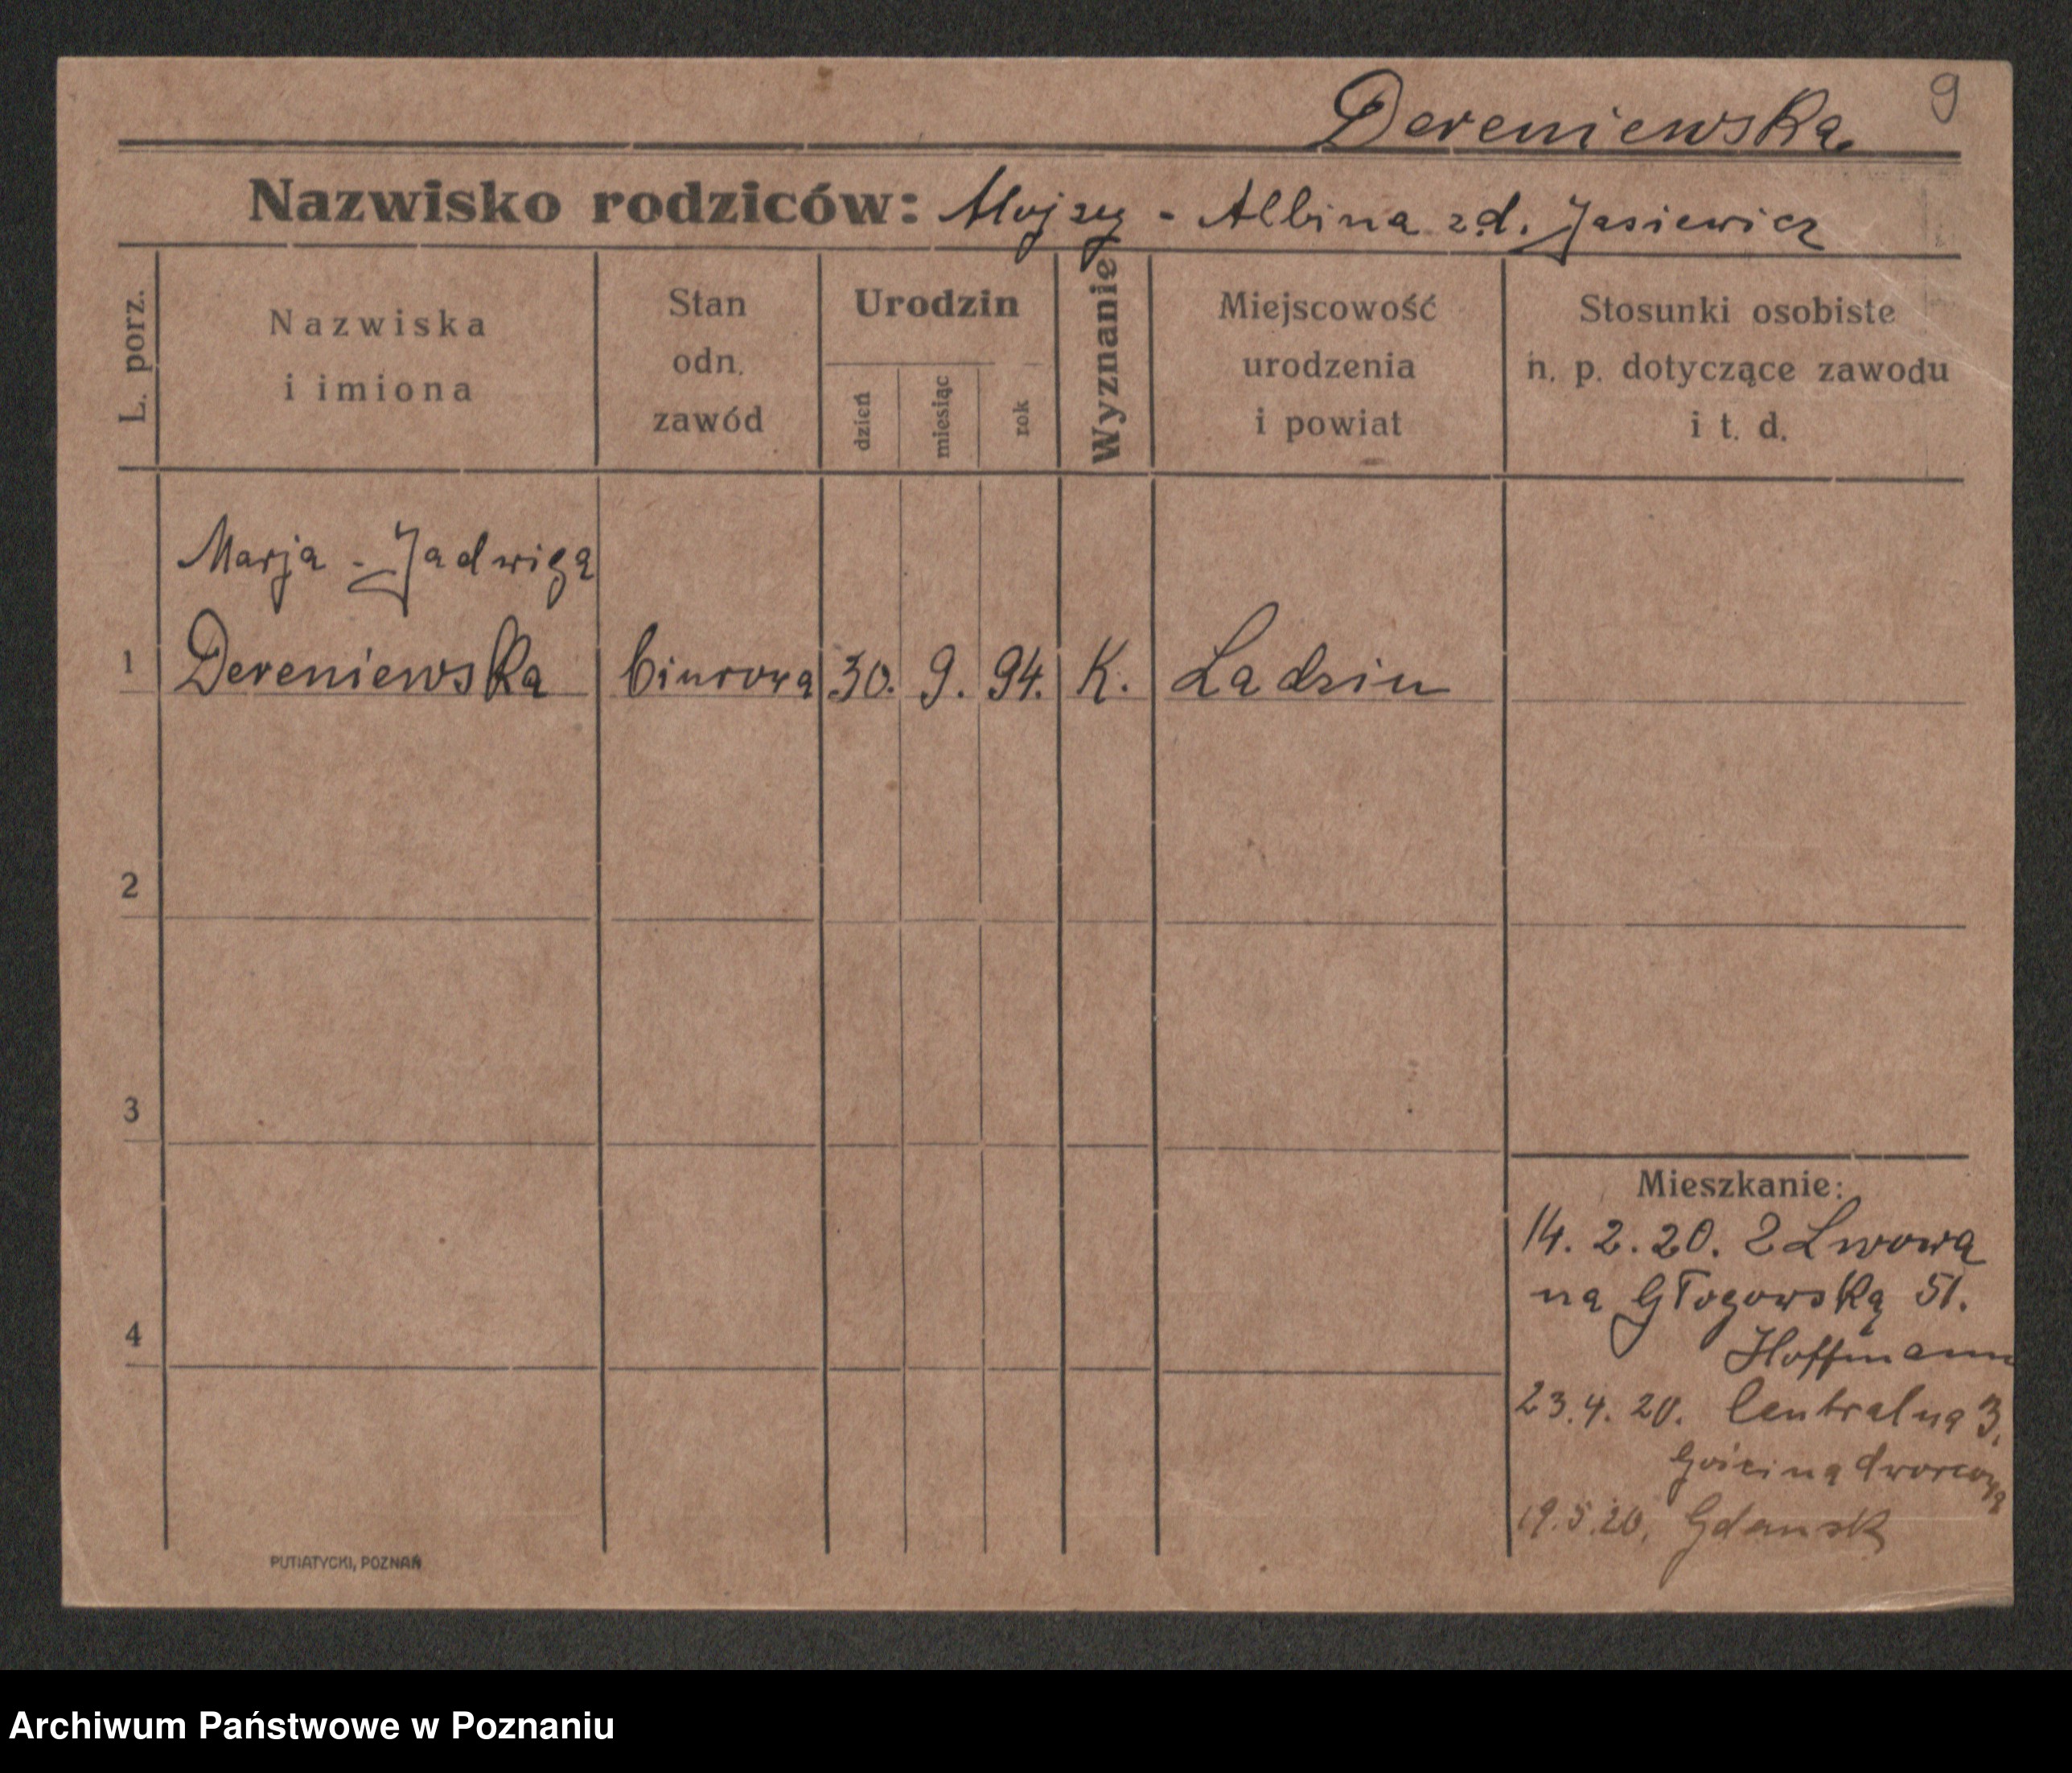 9
Dereniewska.
Nazwisko rodziców: Alojzy - Albina z.d. Jasiewicz
L. porz.
Nazwiska
i imiona
Stan
odn.
zawód
Urodzin
dzień
miesiąc
rok
Wyznanie
Miejscowość
urodzenia
i powiat
Stosunki osobiste
n. p. dotyczące zawodu
i t. d.
Marja - Jadwiga
1 Dereniewska biurowa 30. 9. 94. K. Ladzin
2
3
Mieszkanie:
14. 2. 20. z Lwowa
na Głogowską 51.
Hoffmann
4
23.4.20. Centralna 3.
dworcowa
19.5.20. Gdansk
PUTIATYCKI, POZNAŃ
Archiwum Państwowe w Poznaniu